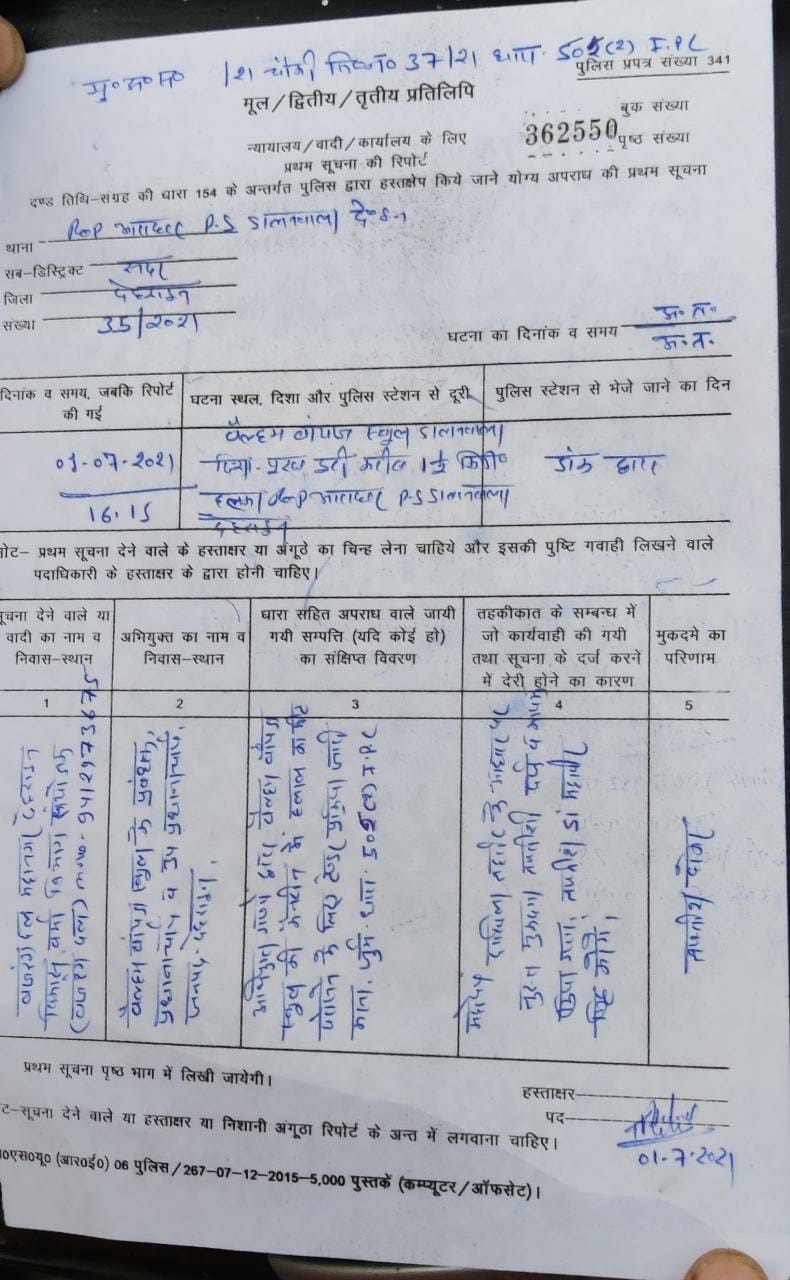 मु०अ०स० /21 चौकी नि०न० 37/21 धारा. 505(2) I.P.C
पुलिस प्रपत्र संख्या 341
मूल/द्वितीय/तृतीय प्रतिलिपि
बुक संख्या
362550 पृष्ठ संख्या
न्यायालय/वादी/कार्यालय के लिए
प्रथम सूचना की रिपोर्ट
दण्ड तिथि-संग्रह की धारा 154 के अन्तर्गत पुलिस द्वारा हस्तक्षेप किये जाने योग्य अपराध की प्रथम सूचना
थाना P.S डालनवाला दे०दून
सब-डिस्ट्रिक्ट सदर
जिला देहरादून
संख्या 35/2021
घटना का दिनांक व समय अ. त. अ. त.
दिनांक व समय, जबकि रिपोर्ट की गई
घटना स्थल, दिशा और पुलिस स्टेशन से दूरी
पुलिस स्टेशन से भेजे जाने का दिन
01-07-2021
16.15
वैल्हम बॉयज स्कूल डालनवाला
दिशा- पूरब दूरी करीब 1½ किमी०
हल्का P.S डालनवाला
देहरादून
डाक द्वारा
नोट- प्रथम सूचना देने वाले के हस्ताक्षर या अंगूठे का चिन्ह लेना चाहिये और इसकी पुष्टि गवाही लिखने वाले
पदाधिकारी के हस्ताक्षर के द्वारा होनी चाहिए।
सूचना देने वाले या वादी का नाम व निवास-स्थान
अभियुक्त का नाम व निवास-स्थान
धारा सहित अपराध वाले जायी गयी सम्पत्ति (यदि कोई हो) का संक्षिप्त विवरण
तहकीकात के सम्बन्ध में जो कार्यवाही की गयी तथा सूचना के दर्ज करने में देरी होने का कारण
मुकदमे का परिणाम
1 2 3 4 5
बजरंग दल महानगर देहरादून
विकास वर्मा विभाग संयोजक
(बजरंग दल) mno- 9412973675
वैल्हम बॉयज स्कूल के प्रबंधक,
प्रधानाचार्य व उप प्रधानाचार्य,
जनपद- देहरादून.
अभियुक्त गणों द्वारा वेल्हम बॉयज
स्कूल की कैन्टीन में हलाल का मीट
परोसने के लिए टेंडर प्रक्रिया जारी
करना. जुर्म धारा. 505(2) I.P.C
महोदय दाखिला तहरीर के आधार पर
तुरन्त मुकदमा तफ्तीशी दर्ज व कायम
किया गया. तफ्तीश
तफ्तीश होगा
प्रथम सूचना पृष्ठ भाग में लिखी जायेगी।
हस्ताक्षर
पद
नोट-सूचना देने वाले या हस्ताक्षर या निशानी अंगूठा रिपोर्ट के अन्त में लगवाना चाहिए।
01-7-2021
०एस०यू० (आर०ई०) 06 पुलिस/267-07-12-2015-5,000 पुस्तकें (कम्प्यूटर/ऑफसेट)।